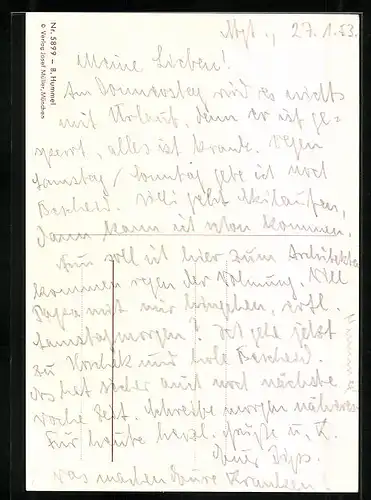 Mgt., 27.1.53.
Meine Lieben!
Am Donnerstag wird es nichts
mit Urlaub, denn er ist ge=
sperrt, alles ist krank. Wegen
Samstag/Sonntag gebe ich noch
Bescheid. Willi geht Skilaufen,
dann kann ich schon kommen.
Nun soll ich hier zum Architekten
kommen wegen der Wohnung. Will
Papa mit mir hingehen, evtl.
Samstagmorgen? Ich gehe jetzt
zu und hole Bescheid.
Das hat sicher auch noch nächste
Woche Zeit. Schreibe morgen näheres.
Für heute herzl. Grüße u. K.
Eure
Was machen Eure Kranken!
Nr. 5899 – B. Hummel
© Verlag Josef Müller, München